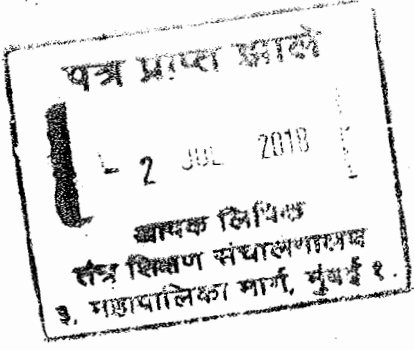 पत्र प्राप्त झाले
- 2 JUL 2018
आवक लिपिक
तंत्र शिक्षण संचालनालय
३, महापालिका मार्ग, मुंबई १.